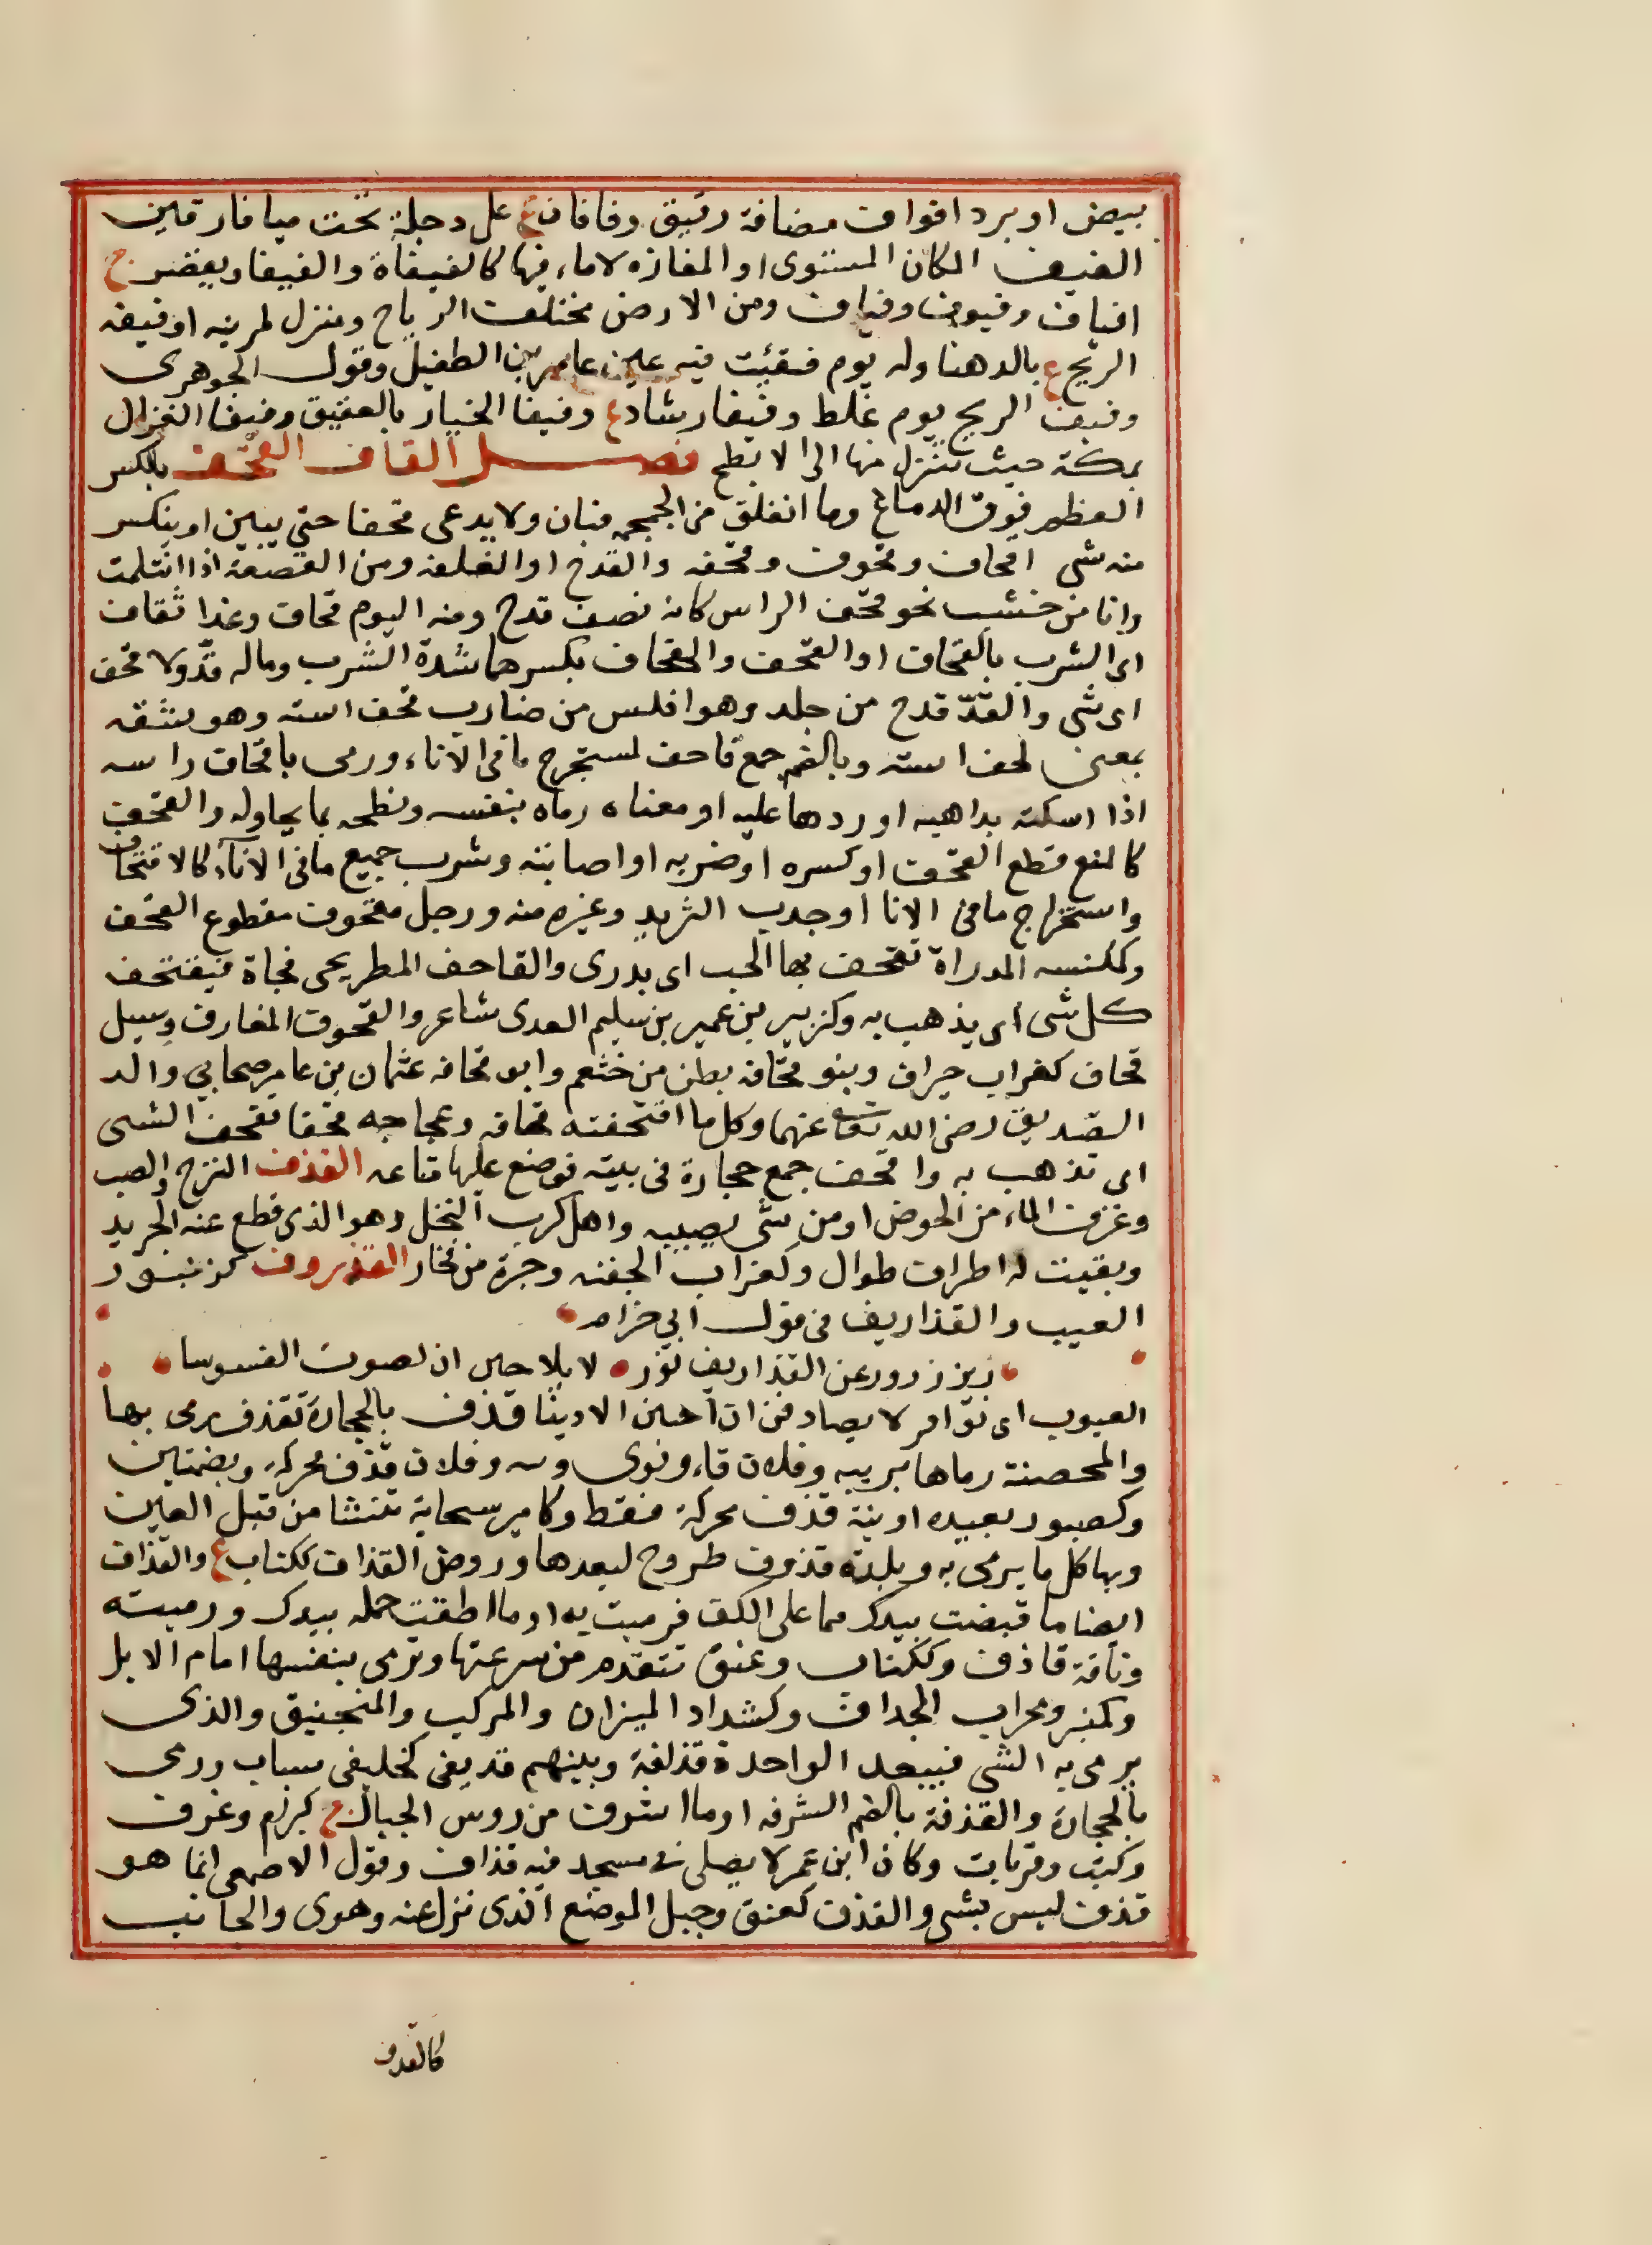 بيض او برد افواف مضافة رقيق وفافان ع على دجلة تحت ميافارقين
الفيف المكان المستوى او المفازه لاماء فيها كالفيفاة والفيفا ويقصر ج
افياف وفيوف وفياف ومن الارض مختلف الرياح ومنزل لمزينه او فيفه
الريح ع بالدهنا وله يوم فقئت فيه عين عامر بن الطفيل وقول الجوهرى
وفيف الريح يوم غلط وفيفا رشاد ع وفيفا الخبار بالعقيق وفيفا الغزال
بمكة حيث ينزل منها الى الابطح فصــل القاف القحف بالكسر
العظم فوق الدماغ وما انفلق من الجمجمه فبان ولا يدعى قحفا حتى يبين او ينكسر
منه شى اقحاف وقحوف وقحفه والقدح او الفلقه من القصعة اذا انثلمت
وانا من خشب نحو قحف الراس كانه نصف قدح ومنه اليوم قحاف وغدا نقاف
اى الشرب بالقحاف او القحف والقحاف بكسرهما شدة الشرب وماله قدّ ولا قحف
اى شى والقدّ قدح من جلد وهو افلس من ضارب قحف استه وهو شقه
بمعنى لحف استه وبالضم جمع قاحف لمستخرج ما فى الاناء ورمى باقحاف راسه
اذا اسكته بداهيه اوردها عليه او معناه رماه بنفسه ونطحه بما يحاوله والقحف
كالمنع قطع القحف او كسره او ضربه او اصابته وشرب جميع ما فى الاناء كالاقتحاف
واستخراج ما فى الانا او جدب الثريد وغيره منه ورجل مقحوف مقطوع القحف
وككنسه المدراة تقحف بها الحب اى يدرى والقاحف المطر يجى فجاة فيقتحف
كل شى اى يذهب به وكزبير بن عمير بن سليم العدى شاعر والقحوف المغارف وسيل
قحاف كغراب جراف وبنو قحافه بطن من خثعم وابو قحافه عثمان بن عامر صحابي والد
الصديق رضى الله تعالى عنهما وكل ما اقتحفته قحافه وعجاجه قحفا تقحف الشى
اى تذهب به واقحف جمع حجارة فى بيته فوضع عليها متاعه القذف النزح والصب
وغرف الماء من الحوض او من شى يصيبه واهل كرب النخل وهو الذى قطع عنه الجريد
وبقيت له اطراف طوال وكغراب الجفنه وجرة من فخار القذروف كزنبور
العيب والقذاريف فى قول ابي حزام
زيز زور عن القذاريف نور لا يلاحين ان لصون الغسوسا
العيوب اى نوافر لا يصادفن ان احسن الاديثا قذف بالحجارة تقذف رمى بها
والمحصنة رماها بريبه وفلان قاء ونوى وسه وفلات قذف محركه وبضمتين
وكصبور بعيده او نية قذف محركة فقط وكامير سحابة تنشا من قبل العين
وبها كل ما يرمى به وبلدة قذوف طروح لبعدها وروض القذاف ككتاب ع والقذاف
ايضا ما قبضت بيدك مما على الكف فرميت به او ما اطقت حمله بيدك ورميته
وناقة قاذف وككتاب وعنق تتقدم من سرعتها وترمى بنفسها امام الابل
وكمنبر ومحراب المجداف وكشداد الميزان والمركب والمنجنيق والذى
يرمى به الشى فيبعد الواحدة قذافة وبينهم قذيفى كخليفى سباب ورمى
بالحجارة والقذفة بالضم الشرفه او ما اشرف من روس الجبال ج كبرام وغرف
وكتب وقربات وكان ابن عمر لا يصلى فى مسجد فيه قذاف وقول الاصمعى انما هو
قذف ليس بشى والقذف كعنق وجبل الموضع الذى نزل عنه وهوى والجانب
كالقذف